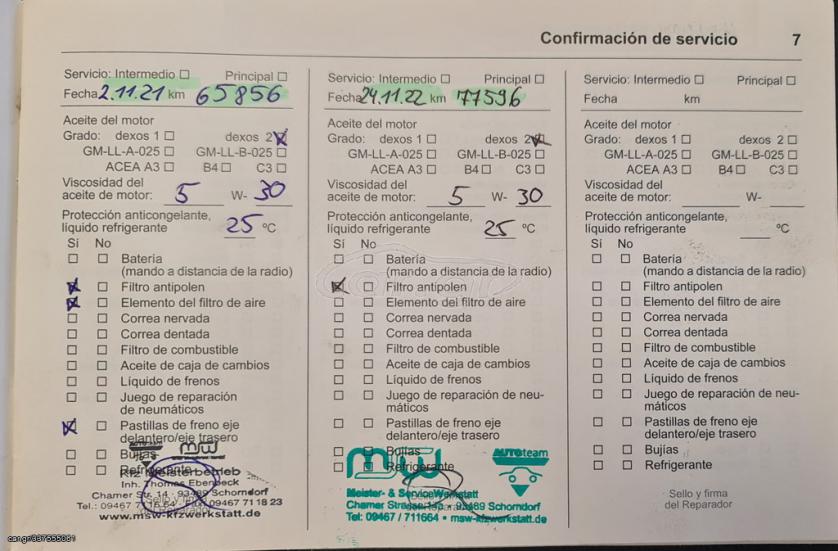 Confirmación de servicio 7
Servicio: Intermedio Principal
Fecha 2.11.21 km 65856
Aceite del motor
Grado: dexos 1 dexos 2
GM-LL-A-025 GM-LL-B-025
ACEA A3 B4 C3
Viscosidad del
aceite de motor: 5 W- 30
Protección anticongelante,
líquido refrigerante 25 °C
Sí No
Batería
(mando a distancia de la radio)
Filtro antipolen
Elemento del filtro de aire
Correa nervada
Correa dentada
Filtro de combustible
Aceite de caja de cambios
Líquido de frenos
Juego de reparación
de neumáticos
Pastillas de freno eje
delantero/eje trasero
Bujías
Refrigerante
msw
Kfz Meisterbetrieb
Inh. Thomas Ebenbeck
Chamer Str. 14 · 93489 Schorndorf
www.msw-kfzwerkstatt.de
Servicio: Intermedio Principal
Fecha 24.11.22 km 77596
Aceite del motor
Grado: dexos 1 dexos 2
GM-LL-A-025 GM-LL-B-025
ACEA A3 B4 C3
Viscosidad del
aceite de motor: 5 W- 30
Protección anticongelante,
líquido refrigerante 25 °C
Sí No
Batería
(mando a distancia de la radio)
Filtro antipolen
Elemento del filtro de aire
Correa nervada
Correa dentada
Filtro de combustible
Aceite de caja de cambios
Líquido de frenos
Juego de reparación de neu-
máticos
Pastillas de freno eje
delantero/eje trasero
Bujías
Refrigerante
msw AUTOteam
Meister- & ServiceWerkstatt
Chamer Strasse 93489 Schorndorf
Tel: 09467 / 711664 • msw-kfzwerkstatt.de
Servicio: Intermedio Principal
Fecha km
Aceite del motor
Grado: dexos 1 dexos 2
GM-LL-A-025 GM-LL-B-025
ACEA A3 B4 C3
Viscosidad del
aceite de motor: W-
Protección anticongelante,
líquido refrigerante °C
Sí No
Batería
(mando a distancia de la radio)
Filtro antipolen
Elemento del filtro de aire
Correa nervada
Correa dentada
Filtro de combustible
Aceite de caja de cambios
Líquido de frenos
Juego de reparación de neu-
máticos
Pastillas de freno eje
delantero/eje trasero
Bujías
Refrigerante
Sello y firma
del Reparador